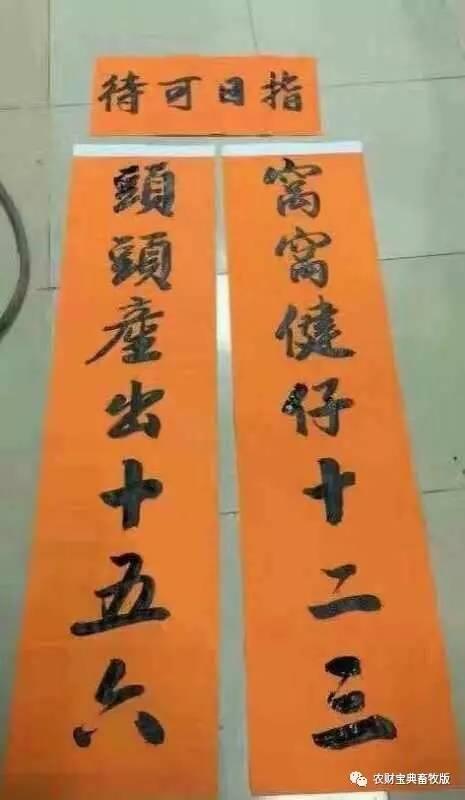 指日可待
窩窩健仔十二三
頭頭產出十五六
农财宝典畜牧版